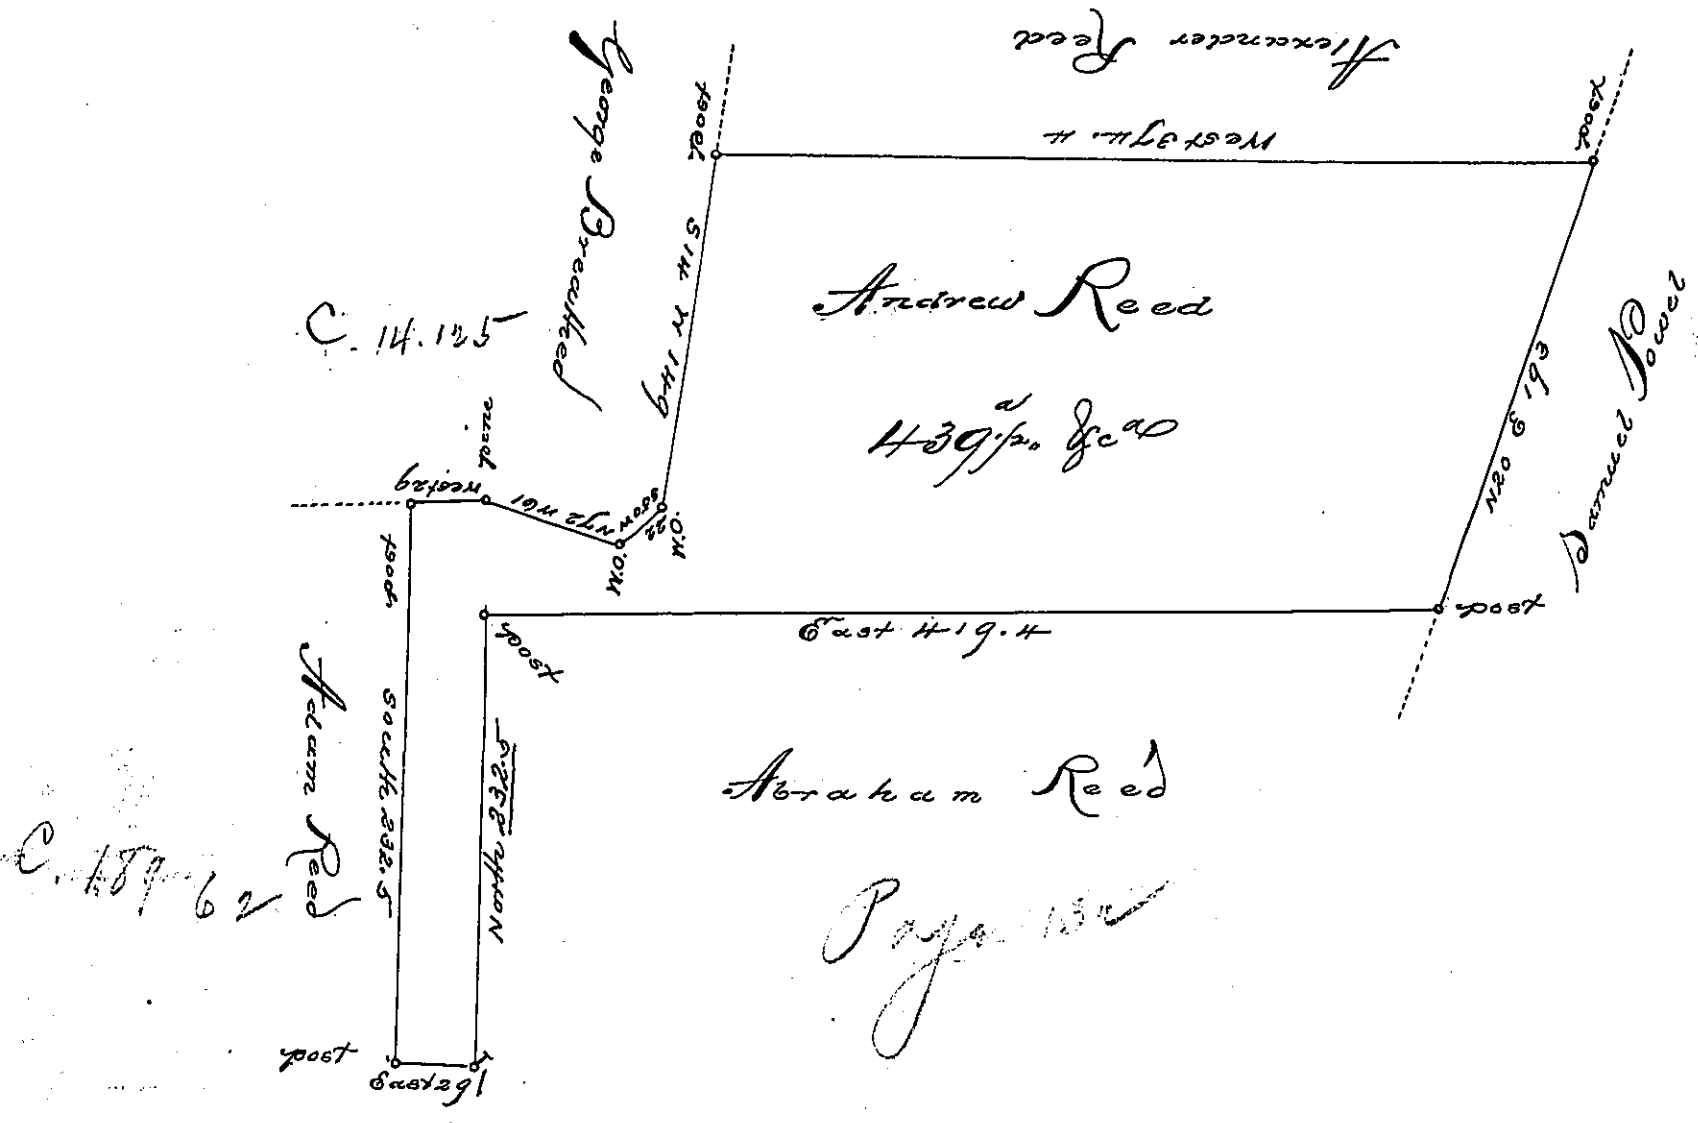 Alexander Reed
West 374.4
post
post
George Breathed
S 14 W 149
Andrew Reed
439 a p. &c a
C. 14.125
N20 E 193
Samuel Powel
pine
West 29
N72 W 61
S50W 22
W.O.
W.O.
post
post
East 419.4
post
Adam Reed
South 232.5
North 232.5
Abraham Reed
Page
post
East 29
P